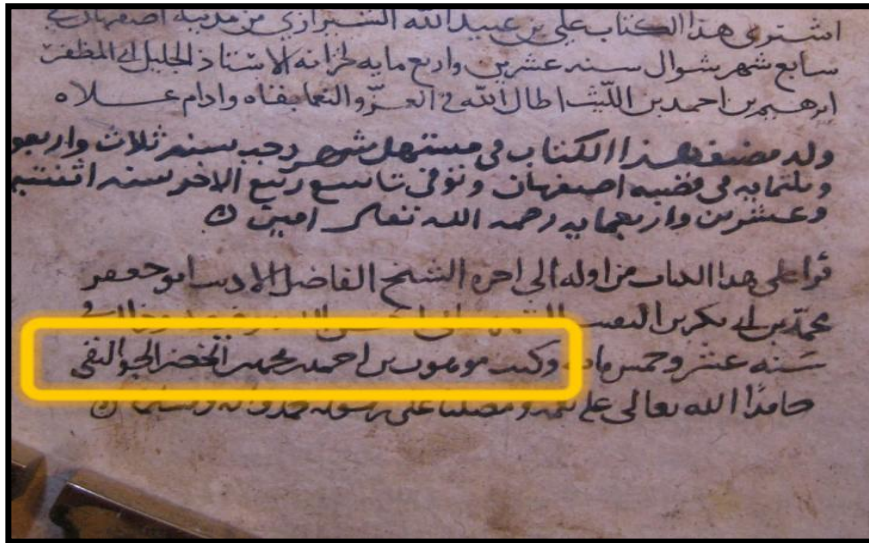 اشترى هذا الكتاب علي بن عبيد الله الشيرازي من مدينة اصفهان في
سابع شهر شوال سنه عشرين واربع مايه لخزانه الاستاذ الجليل ابي المظفر
ابرهيم بن احمد بن الليث اطال الله في العز والنعما بقاه وادام علاه
ولد مصنف هذا الكتاب في مستهل شهر رجب سنه ثلاث واربعو
وثلثمايه في قصبه اصفهان وتوفي تاسع ربيع الاخر سنه اثنتى
وعشرين واربعمايه رحمه الله تعالى امين
قرا علي هذا الكتاب من اوله الى اخره الشيخ الفاضل الاديب ابو جعفر
محمد بن ابي بكر بن
سنه عشر وخمس مايه وكتب موهوب بن احمد بن محمد بن الخضر الجواليقي
حامدًا الله تعالى على نعمه ومصليا على رسوله محمد واله ومسلما